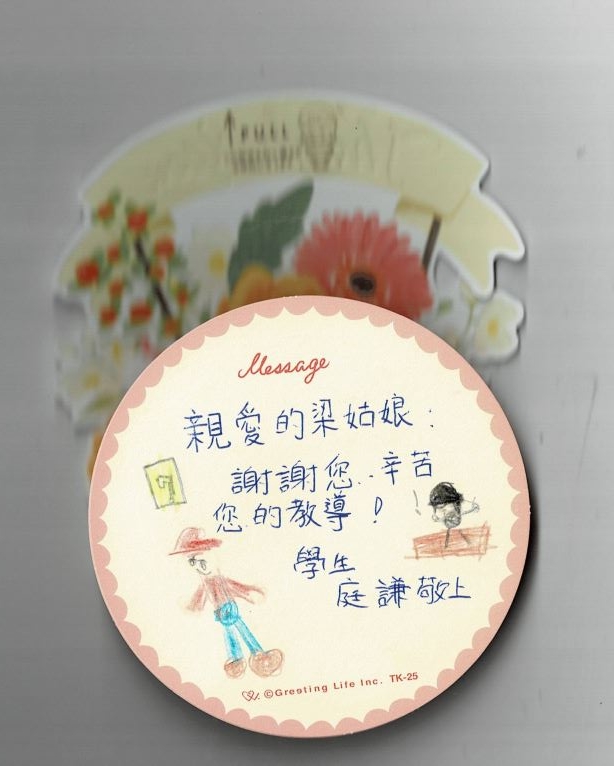 Message
親愛的梁姑娘：
謝謝您..辛苦
您的教導！
學生
庭謙敬上
©Greeting Life Inc. TK-25